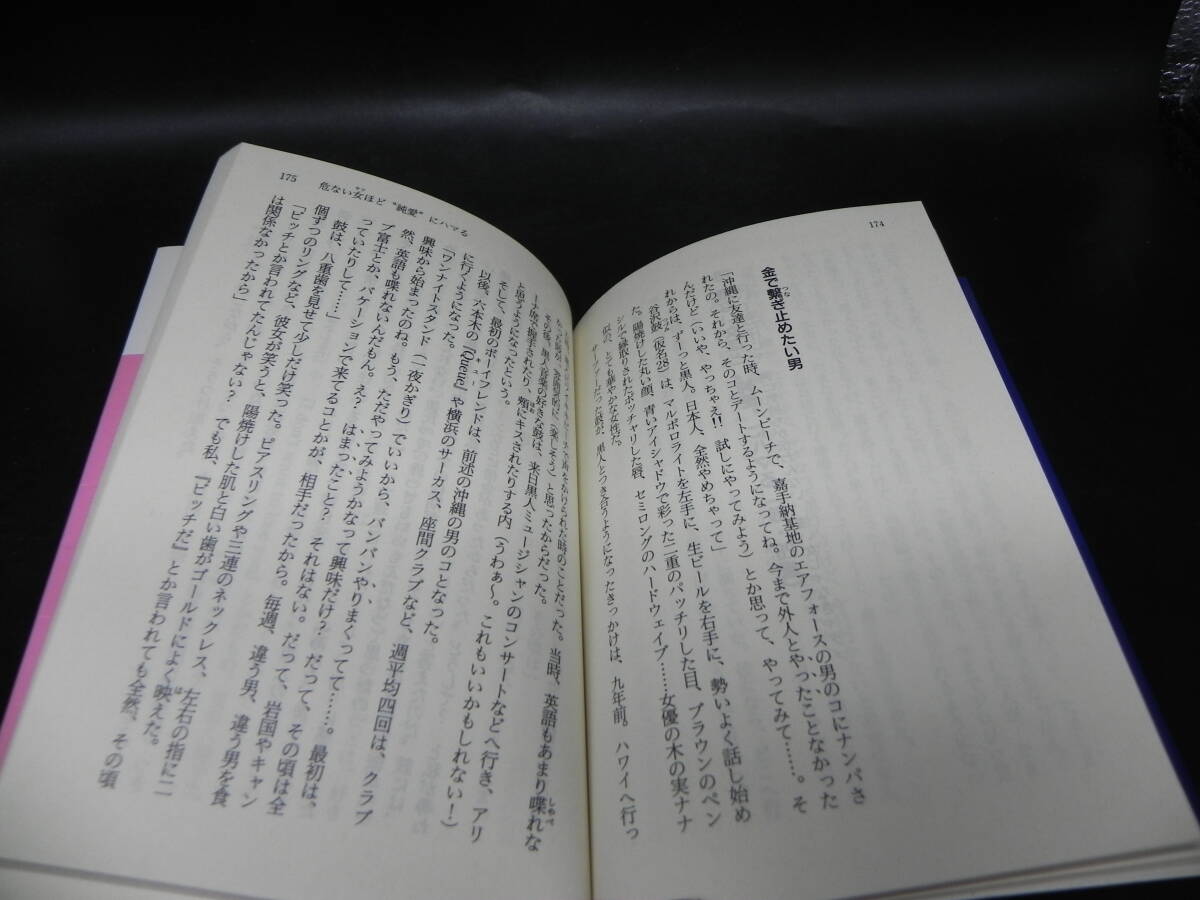 174
金で繋ぎ止めたい男
「沖縄に友達と行った時、ムーンビーチで、嘉手納基地のエアフォースの男のコにナンパさ
れたの。それから、そのコとデートするようになってね。今まで外人とやったことなかった
んだけど(いいや、やっちゃえ!! 試しにやってみよう)とか思って、やってみて……。そ
れからは、ずーっと黒人。日本人、全然やめちゃって」
谷沢鼓(仮名28)は、マルボロライトを左手に、生ビールを右手に、勢いよく話し始め
た。陽焼けした丸い顔、青いアイシャドウで彩った二重のパッチリした目、ブラウンのペン
シルで縁取りされたポッチャリした唇、セミロングのハードウェイブ……女優の木の実ナナ
似の、とても華やかな女性だ。
サーファーだった鼓が、黒人とつき合うようになったきっかけは、九年前。ハワイへ行っ
175 危ない女ほど“純愛”にハマる
で声をかけられた時のことだった。当時、英語もあまり喋れな
(楽しそう)と思ったからだった。
その後、黒人音楽の好きな鼓は、来日黒人ミュージシャンのコンサートなどへ行き、アリ
ーナ席で握手されたり、頬にキスされたりする内(うわぁ〜。これもいいかもしれない!)
と思うようになったという。
そして、最初のボーイフレンドは、前述の沖縄の男のコとなった。
以後、六本木の『Queue』や横浜のサーカス、座間クラブなど、週平均四回は、クラブ
に行くようになった。
「ワンナイトスタンド(一夜かぎり)でいいから、バンバンやりまくってて……。最初は、
興味から始まったのね。もう、ただやってみようかなって興味だけ? だって、その頃は全
然、英語も喋れないんだもん。え? はまったこと? それはない。だって、岩国やキャン
プ富士とか、バケーションで来てるコとかが、相手だったから。毎週、違う男、違う男を食
っていたりして……」
鼓は、八重歯を見せて少しだけ笑った。ピアスリングや三連のネックレス、左右の指に二
個ずつのリングなど、彼女が笑うと、陽焼けした肌と白い歯がゴールドによく映えた。
「ビッチとか言われてたんじゃない? でも私、『ビッチだ』とか言われても全然、その頃
は関係なかったから」